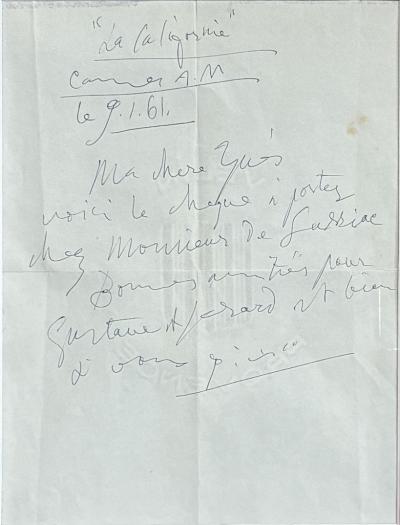 "La Californie"
Cannes A.M
le 9.1.61.
Ma chere Inès
voici le cheque à porter
chez Monsieur De Sariac
Bonnes amitiés pour
Gustave et Gerard et bien
à vous Picasso